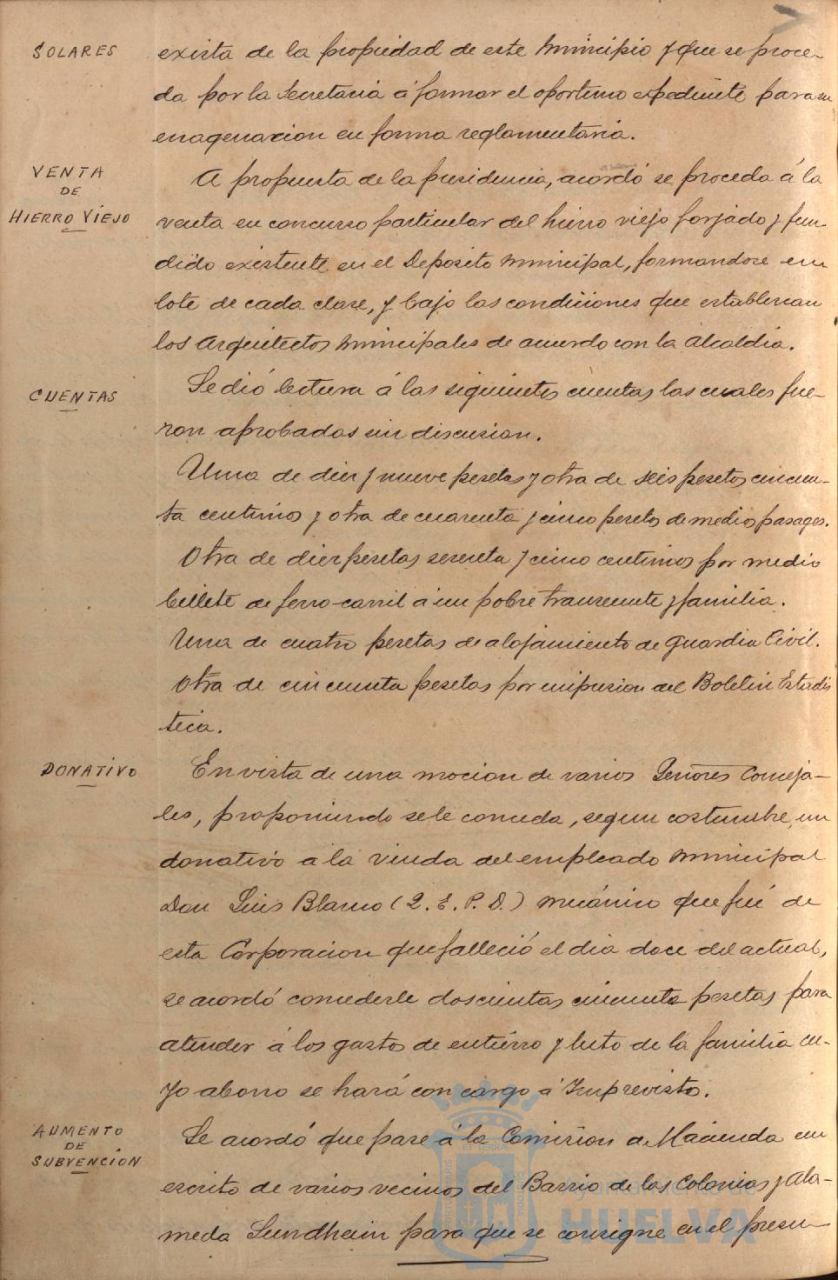 SOLARES
exista de la propiedad de este Municipio y que se proce-
da por la Secretaria á formar el oportuno expediente para su
enagenacion en forma reglamentaria.
VENTA
DE
HIERRO VIEJO
A propuesta de la presidencia, acordó se proceda á la
venta en concurso particular del hierro viejo forjado y fun-
dido existente en el Deposito Municipal, formandose un
lote de cada clase, y bajo las condiciones que establezcan
los Arquitectos Municipales de acuerdo con la Alcaldia.
CUENTAS
Se dió lectura á las siguientes cuentas las cuales fue-
ron aprobadas sin discusion.
Una de diez y nueve pesetas y otra de seis pesetas cincuen-
ta centimos y otra de cuarenta y cinco pesetas de medios pasages.
Otra de diez pesetas setenta y cinco centimos por medio
billete de ferro-carril á un pobre transeunte y familia.
Una de cuatro pesetas de alojamiento de Guardia Civil.
Otra de cincuenta pesetas por impresion del Boletin Estadis
tica.
DONATIVO
En vista de una mocion de varios Señores Conceja-
les, proponiendo se le conceda, segun costumbre, un
donativo á la viuda del empleado Municipal
Don Luis Blanco (Q. E. P. D.) mecánico que fué de
esta Corporacion que falleció el dia doce del actual,
se acordó concederle doscientas cincuenta pesetas para
atender á los gastos de entierro y luto de la familia cu-
yo abono se hará con cargo á Imprevisto.
AUMENTO
DE
SUBVENCIÓN
Se acordó que pase á la Comision de Hacienda un
escrito de varios vecinos del Barrio de las Colonias y Ala-
meda Sundheim para que se consigne en el presu-
Ayuntamiento de
HUELVA